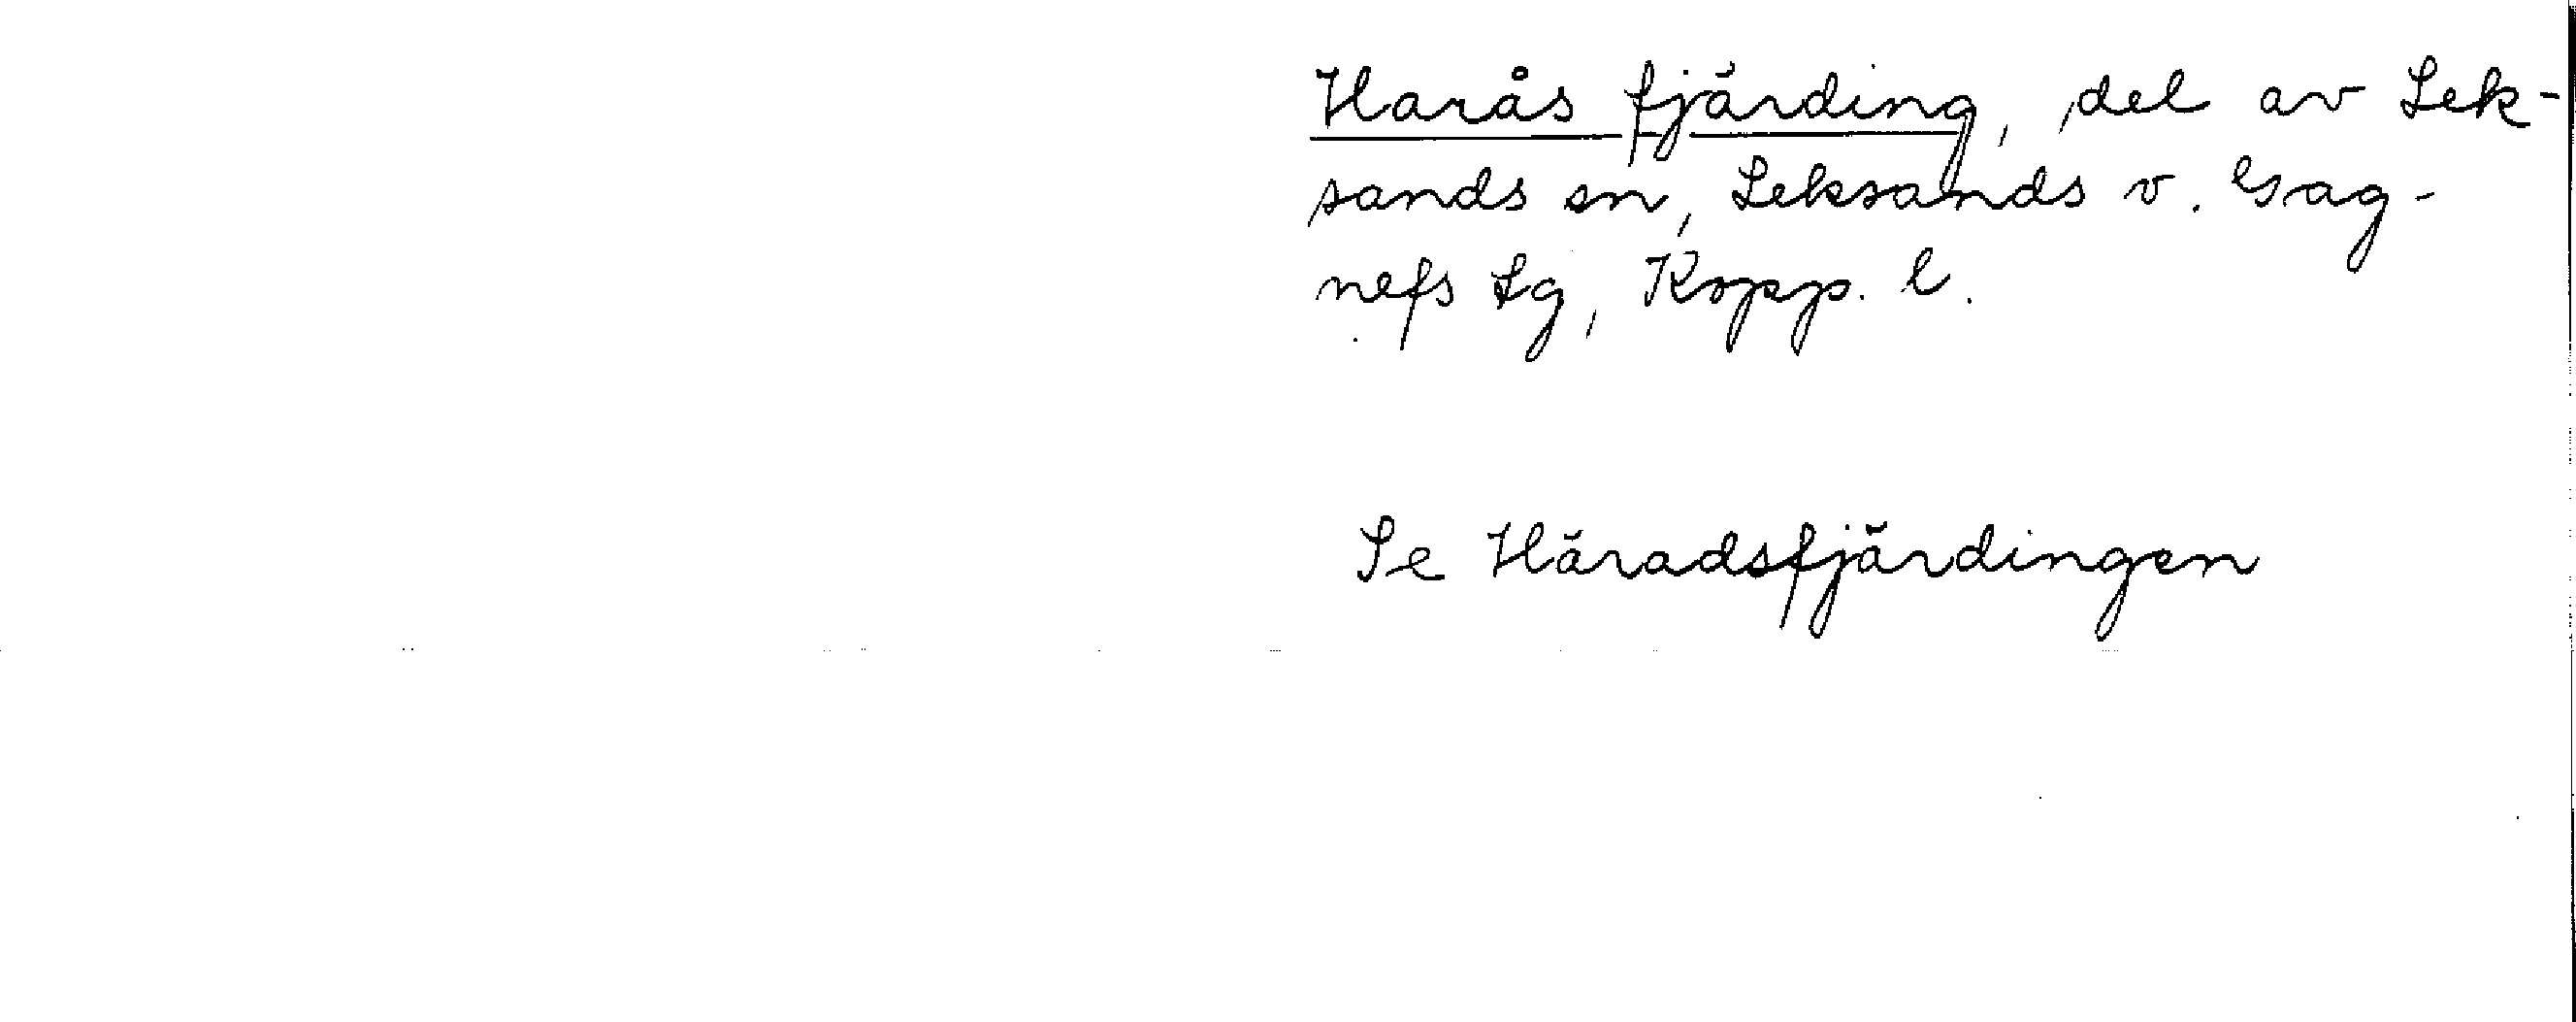 Harås fjärding, del av Lek-
sands sn, Leksands v. Gag-
nefs tg, Kopp. l.
Se Häradsfjärdingen